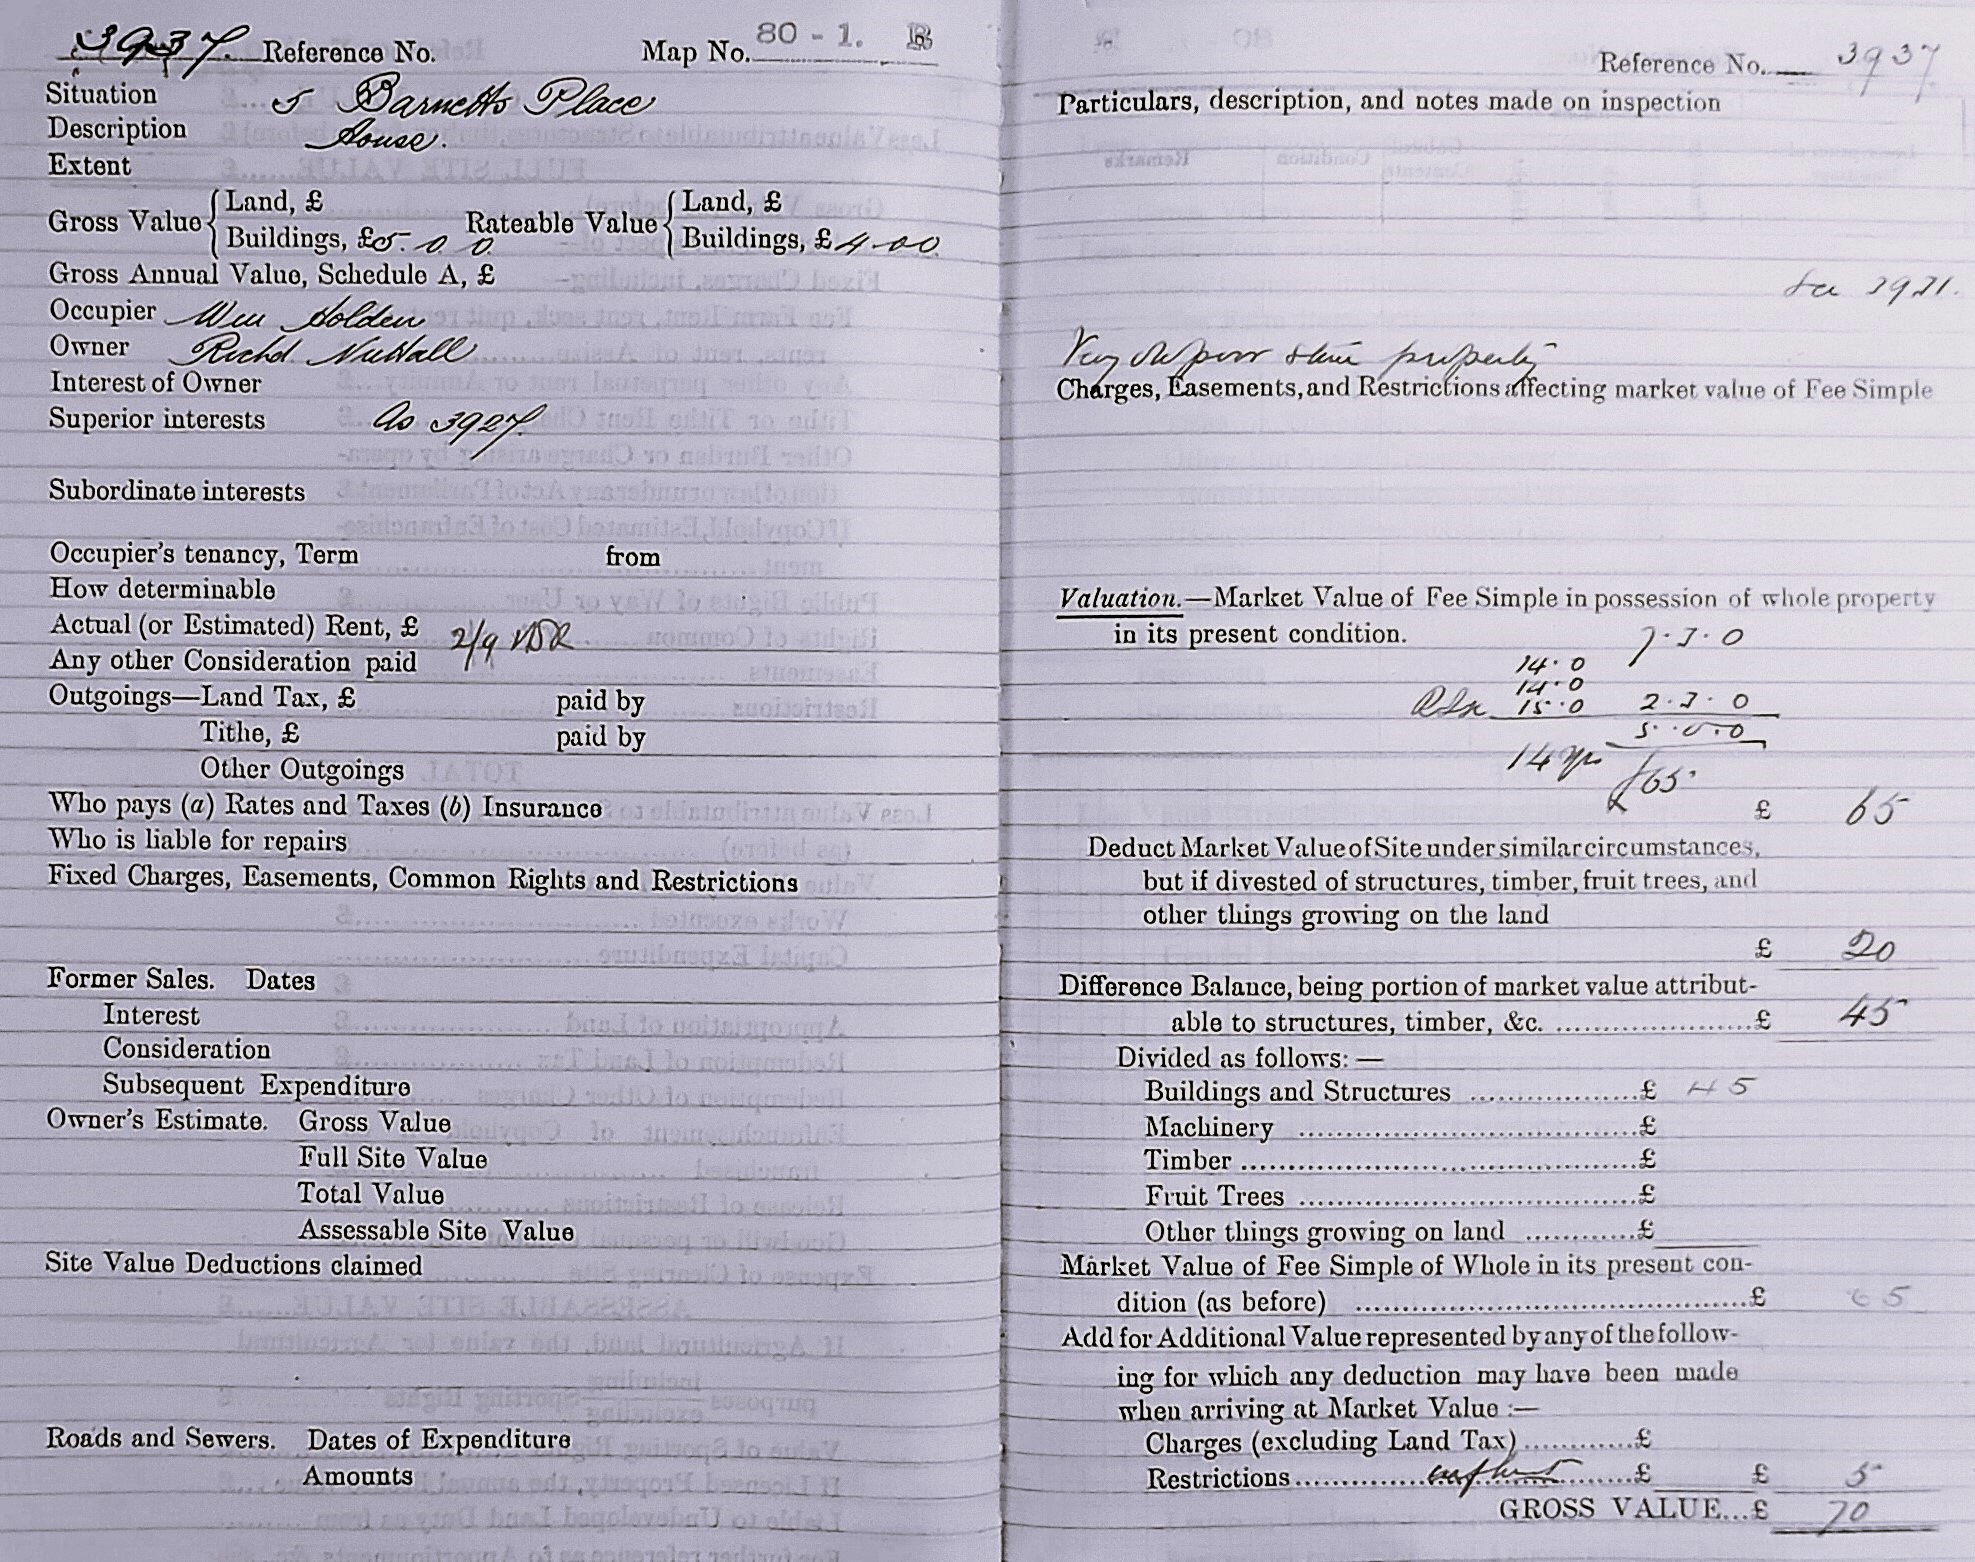 3937. Reference No. Map No. 80 - 1. B
Situation 5 Barnetts Place
Description House.
Extent
Gross Value { Land, £ Rateable Value { Land, £
Buildings, £5. 0 0 Buildings, £4-0 0.
Gross Annual Value, Schedule A, £
Occupier Wm Holden
Owner Richd. Nuttall
Interest of Owner
Superior interests As 3927.
Subordinate interests
Occupier's tenancy, Term from
How determinable
Actual (or Estimated) Rent, £ 2/9
Any other Consideration paid
Outgoings—Land Tax, £ paid by
Tithe, £ paid by
Other Outgoings
Who pays (a) Rates and Taxes (b) Insurance
Who is liable for repairs
Fixed Charges, Easements, Common Rights and Restrictions
Former Sales. Dates
Interest
Consideration
Subsequent Expenditure
Owner's Estimate. Gross Value
Full Site Value
Total Value
Assessable Site Value
Site Value Deductions claimed
Roads and Sewers. Dates of Expenditure
Amounts
Reference No. 3937
Particulars, description, and notes made on inspection
Very old poor property
Charges, Easements, and Restrictions affecting market value of Fee Simple
Valuation.—Market Value of Fee Simple in possession of whole property
in its present condition. 7.3.0
14.0
14.0
15.0 2.3.0
5.0.0
14 yrs £65.
£ 65
Deduct Market Value of Site under similar circumstances,
but if divested of structures, timber, fruit trees, and
other things growing on the land
£ 20
Difference Balance, being portion of market value attribut-
able to structures, timber, &c. ....................£ 45
Divided as follows:—
Buildings and Structures ..................£ 45
Machinery ....................................£
Timber ..........................................£
Fruit Trees ....................................£
Other things growing on land ............£
Market Value of Fee Simple of Whole in its present con-
dition (as before) ..........................................£ 65
Add for Additional Value represented by any of the follow-
ing for which any deduction may have been made
when arriving at Market Value:—
Charges (excluding Land Tax)............£
Restrictions..............................£ £ 5
GROSS VALUE...£ 70